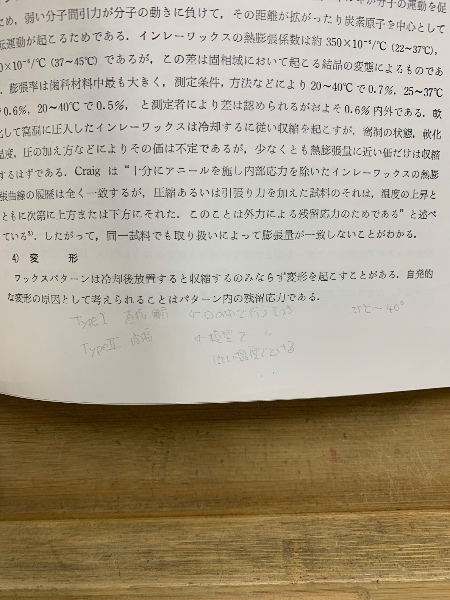 分子の運動を促
ため，弱い分子間引力が分子の動きに負けて，その距離が拡がったり炭素原子を中心として
転運動が起こるためである．インレーワックスの熱膨張係数は約350×10⁻⁶/℃ (22〜37℃),
0×10⁻⁶/℃ (37〜45℃) であるが，この差は固相域において起こる結晶の変態によるものであ
．膨張率は歯科材料中最も大きく，測定条件，方法などにより20〜40℃で0.7%，25〜37℃
で0.6%，20〜40℃で0.5%，と測定者により差は認められるがおよそ0.6%内外である．軟
化して窩洞に圧入したインレーワックスは冷却するに従い収縮を起こすが，窩洞の状態，軟化
温度，圧の加え方などによりその価は不定であるが，少なくとも熱膨張量に近い価だけは収縮
するはずである．Craigは“十分にアニールを施し内部応力を除いたインレーワックスの熱膨
張曲線の履歴は全く一致するが，圧縮あるいは引張り力を加えた試料のそれは，温度の上昇と
ともに次第に上方または下方にそれた．このことは外力による残留応力のためである”と述べ
ている⁵⁾．したがって，同一試料でも取り扱いによって膨張量が一致しないことがわかる．
4) 変　形
ワックスパターンは冷却後放置すると収縮するのみならず変形を起こすことがある．自発的
な変形の原因として考えられることはパターン内の残留応力である．
Type I 直接 口の中で
Type II 間接 模型で